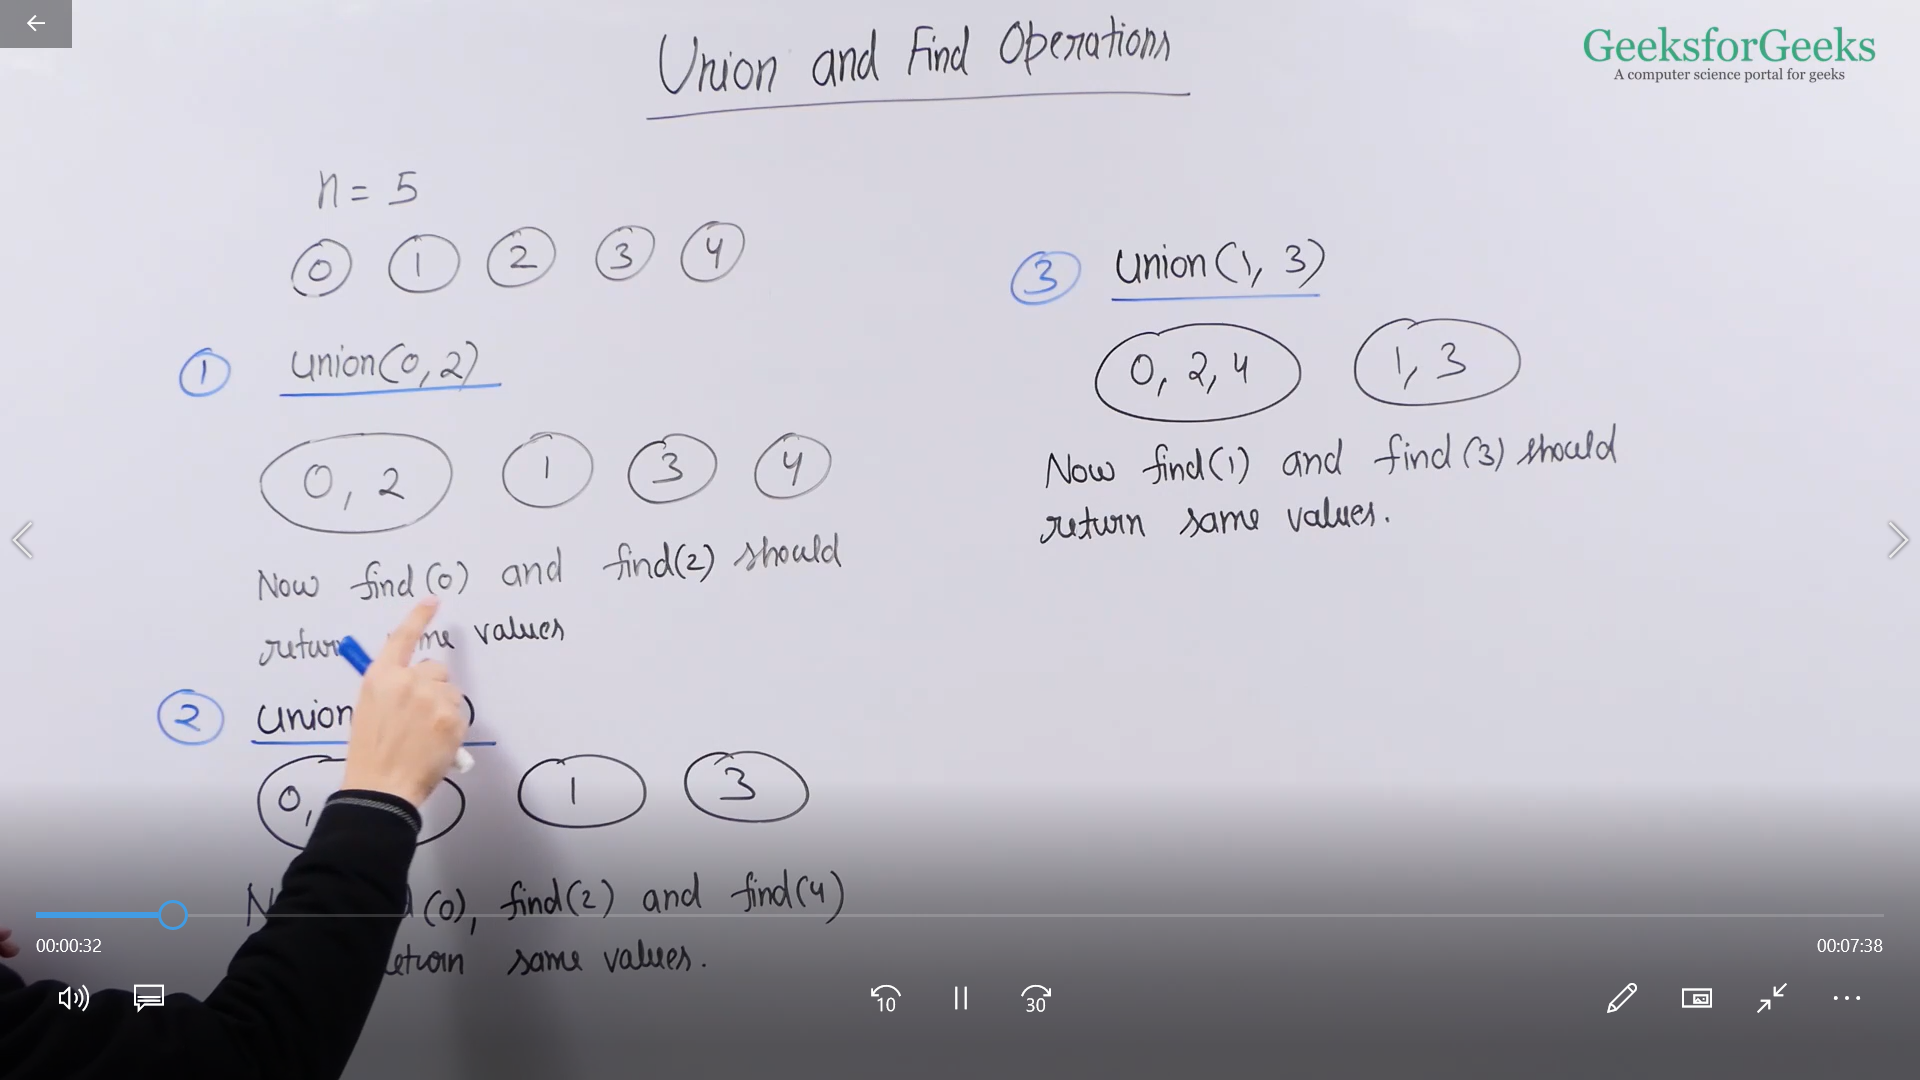 Union and Find Operations
GeeksforGeeks
A computer science portal for geeks
n = 5
0 1 2 3 4
1 union(0, 2)
0, 2 1 3 4
Now find(0) and find(2) should
values
2 union )
0, 1 3
(0), find(2) and find(4)
same values.
3 union(1, 3)
0, 2, 4 1, 3
Now find(1) and find(3) should
return same values.
00:00:32
00:07:38
10
30